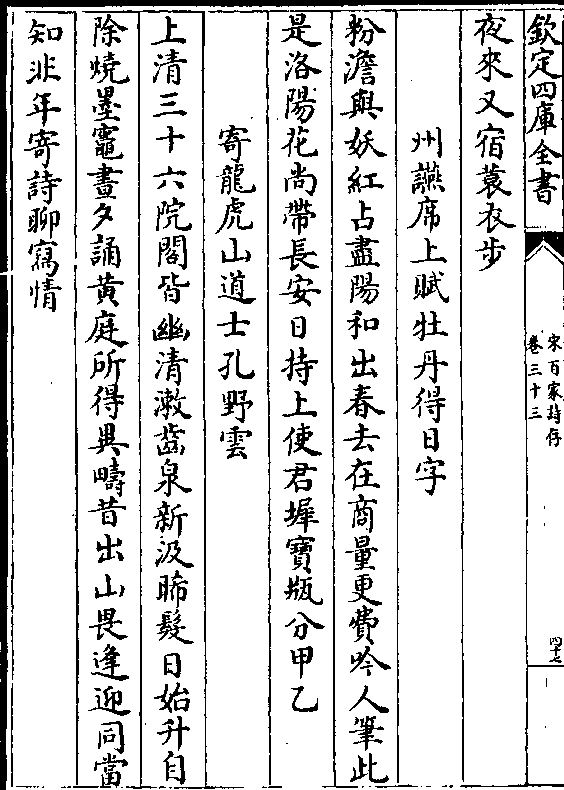 欽定四庫全書
宋百家詩存
卷三十三
四十七
夜來又宿蓑衣步
州讌席上賦牡丹得日字
粉澹與妖紅占盡陽和出春去在商量更費吟人筆此
是洛陽花尚帶長安日持上使君墀寶瓶分甲乙
寄龍虎山道士孔野雲
上清三十六院閣皆幽清漱齒泉新汲晞髮日始升自
除燒墨竈晝夕誦黃庭所得異疇昔出山畏逢迎同當
知非年寄詩聊寫情